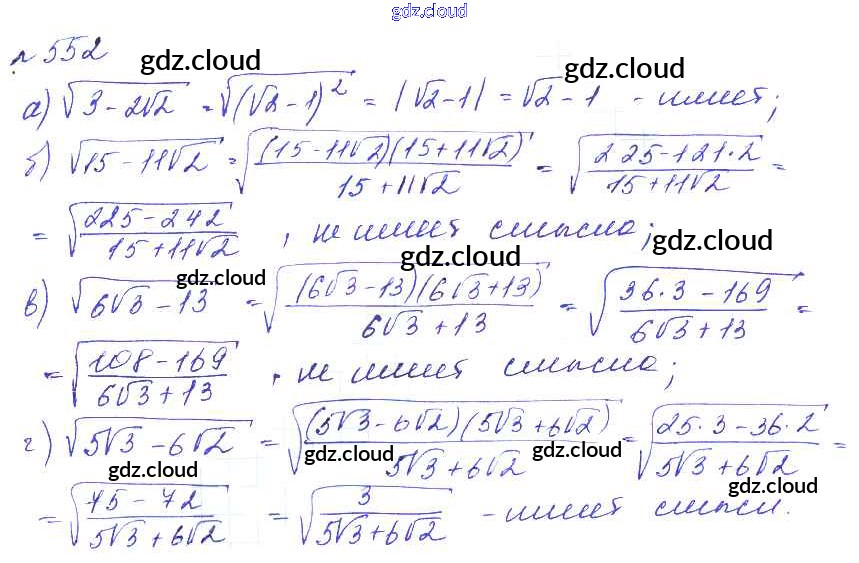 gdz.cloud
№ 552
gdz.cloud gdz.cloud
а) √(3 - 2√2) = √((√2 - 1)²) = |√2 - 1| = √2 - 1 - имеет;
б) √(15 - 11√2) = √((15 - 11√2)(15 + 11√2)/(15 + 11√2)) = √((225 - 121·2)/(15 + 11√2)) =
= √((225 - 242)/(15 + 11√2)), не имеет смысла;
gdz.cloud gdz.cloud gdz.cloud
в) √(6√3 - 13) = √((6√3 - 13)(6√3 + 13)/(6√3 + 13)) = √((36·3 - 169)/(6√3 + 13)) =
= √((108 - 169)/(6√3 + 13)), не имеет смысла;
г) √(5√3 - 6√2) = √((5√3 - 6√2)(5√3 + 6√2)/(5√3 + 6√2)) = √((25·3 - 36·2)/(5√3 + 6√2)) =
gdz.cloud gdz.cloud gdz.cloud gdz.cloud
= √((75 - 72)/(5√3 + 6√2)) = √(3/(5√3 + 6√2)) - имеет смысл.